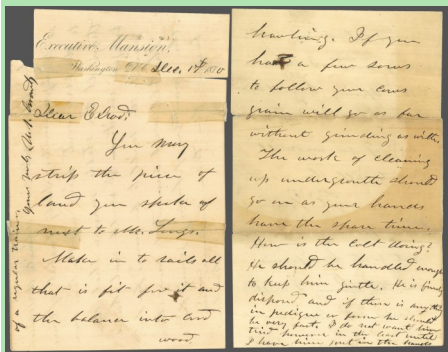 Executive Mansion,
Washington D.C. Dec. 1st 1870
Dear Elrod:
You may
strip the piece of
land you speak of
next to Mr. Longs.
Make in to rails all
that is fit for it and
the balance into cord
wood.
of a regular trainer
Yours truly, U. S. Grant
hauling. If you
have a few sows
to follow your cows
grain will go as far
without grinding as with.
The work of cleaning
up undergrouth should
go on as your hands
have the spare time.
How is the colt doing?
He should be handled enough
to keep him gentle. He is finely
disposed, and if there is anything
in pedigree or form he should
be very fast. I do not want him
tried however in the least until
I have him put in the hands